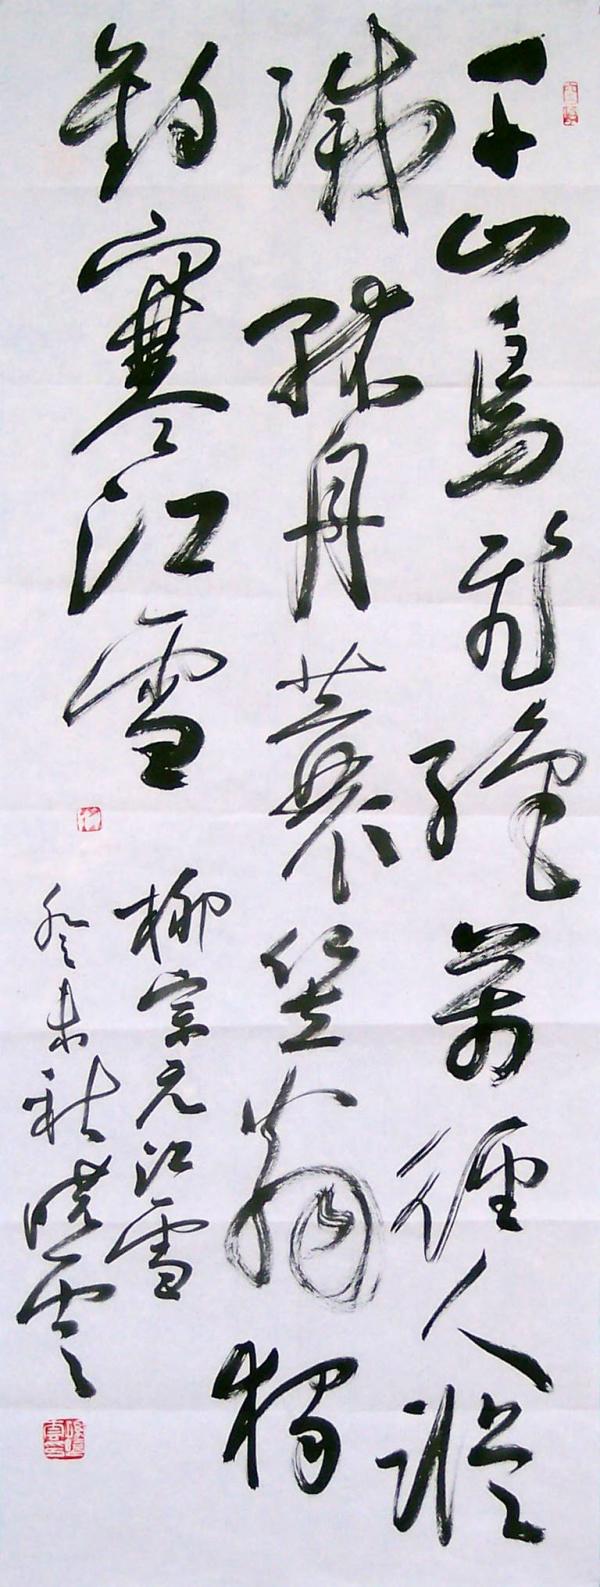 千山鳥飛絕萬徑人蹤
滅孤舟蓑笠翁獨
釣寒江雪
柳宗元江雪
癸未秋曉雲